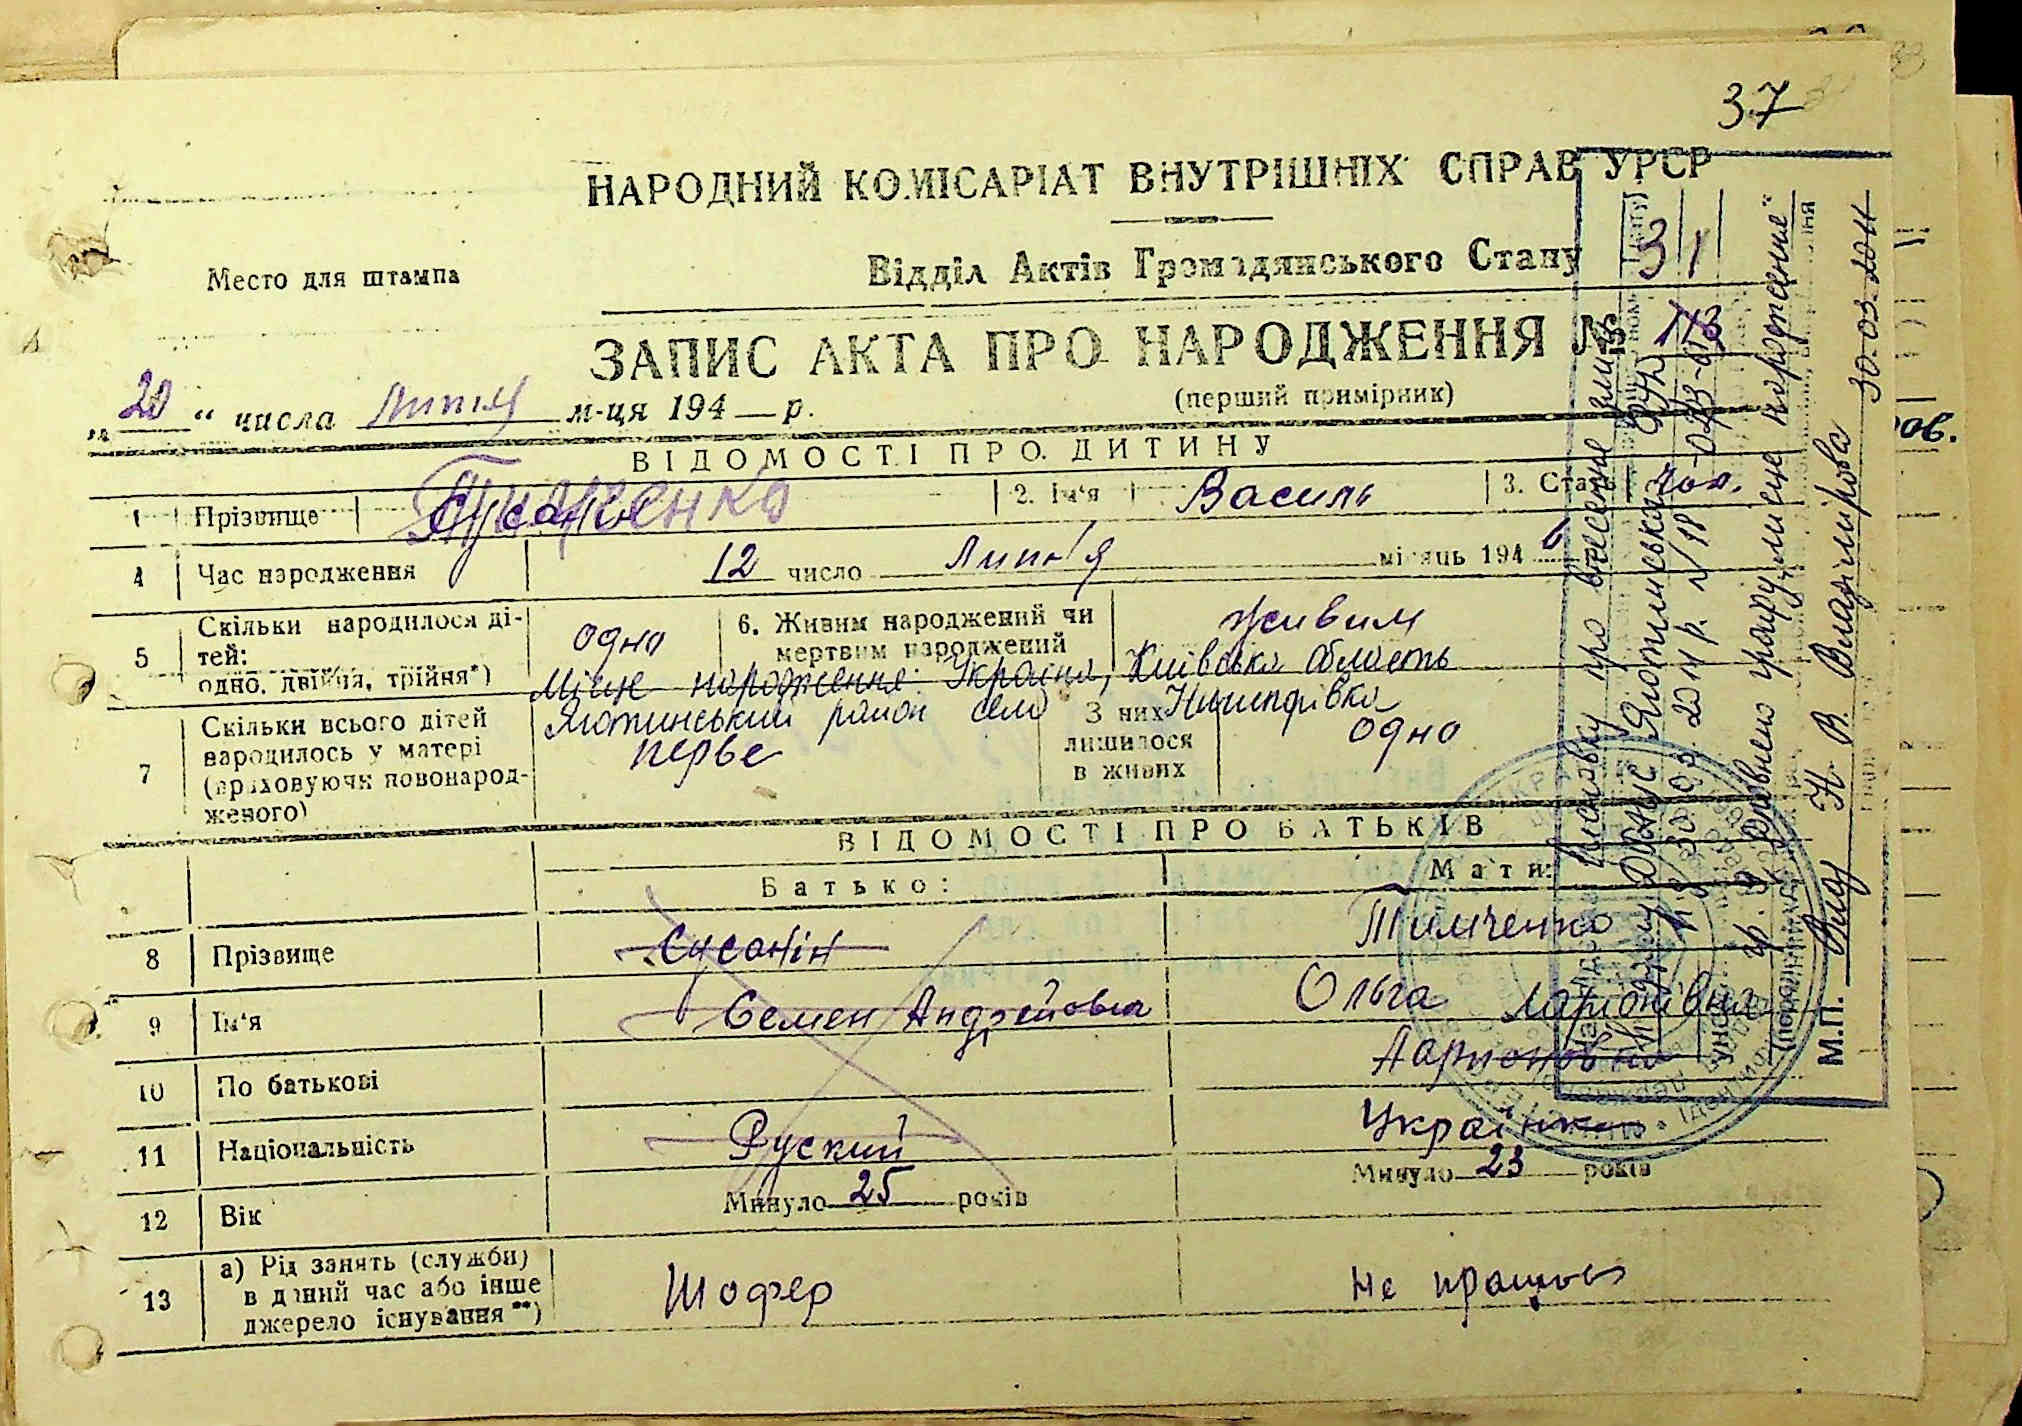 37
НАРОДНИЙ КОМІСАРІАТ ВНУТРІШНІХ СПРАВ УРСР
Место для штампа
Відділ Актів Громадянського Стану
31
ЗАПИС АКТА ПРО НАРОДЖЕННЯ № 113
(перший примірник)
„20“ числа липня м-ця 194 р.
ВІДОМОСТІ ПРО ДИТИНУ
1 Прізвище Тимченко 2. Ім'я Василь 3. Стать чол.
4 Час народження 12 число Липня місяць 1946
5 Скільки народилося ді-
тей:
одно, двійня, трійня*) одно
6. Живим народжений чи
мертвим народжений живим
Місце народження: Україна, Київська область
Яготинський район село Ничипорівка
7 Скільки всього дітей
народилось у матері
(враховуючи новонарод-
женого) перве
З них
лишилося
в живих одно
ВІДОМОСТІ ПРО БАТЬКІВ
Батько: Мати:
8 Прізвище Сусанін Тимченко
9 Ім'я Семен Андрейович Ольга Ларіонівна
10 По батькові Ларионовна
11 Національність Руский Українка
12 Вік Минуло 25 років Минуло 23 років
13 а) Рід занять (служби)
в даний час або інше
джерело існування**) Шофер Не працює
висновку про внесення змін
ДРАЦС Яготинського РУЮ
30.03.2011 р. №18
гр. доповнено графу „місце народження“
М.П. Н. В. Владімірова 30.03.2011